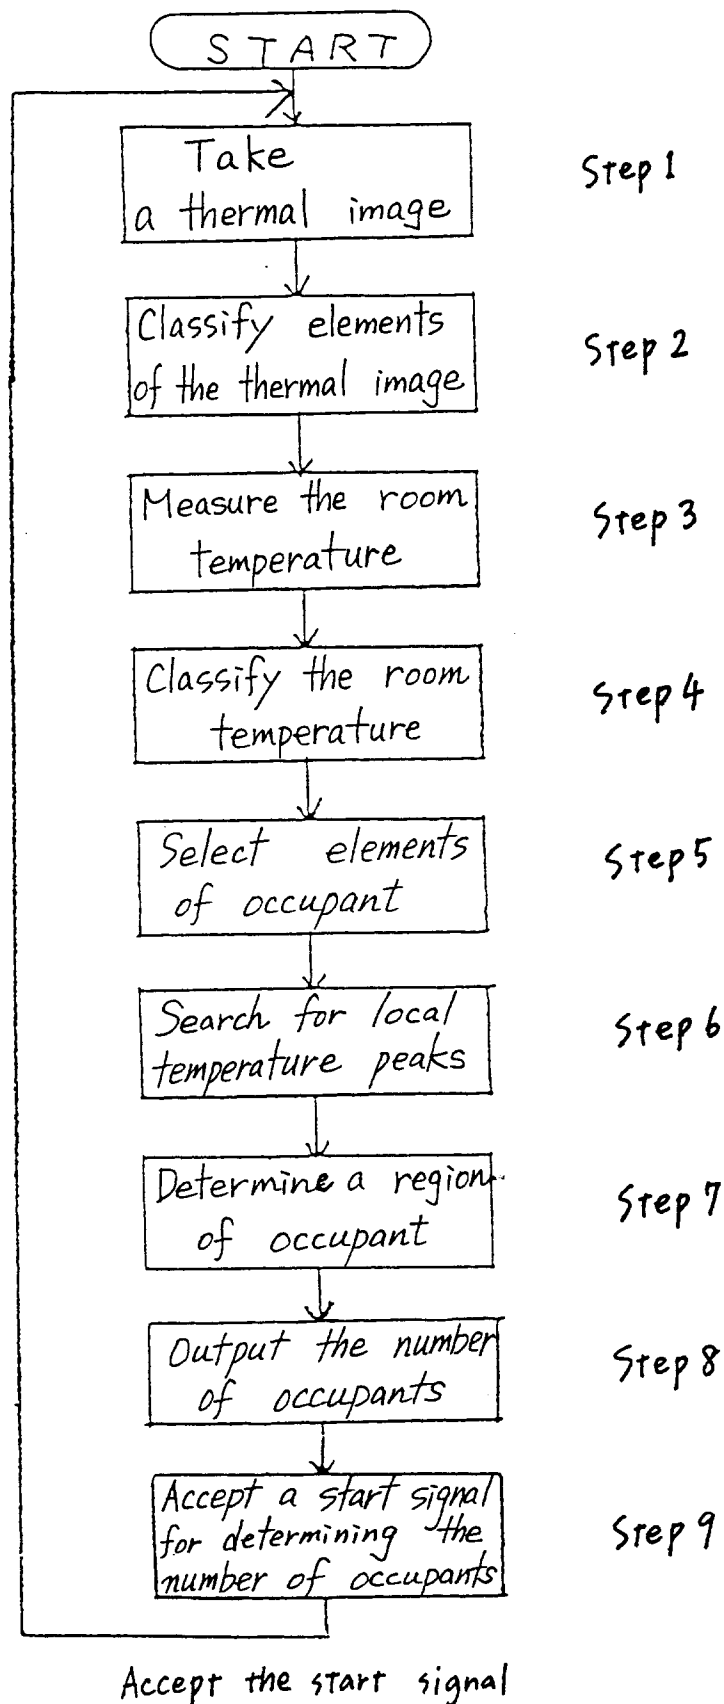 START
Take
a thermal image
Step 1
Classify elements
of the thermal image
Step 2
Measure the room
temperature
Step 3
Classify the room
temperature
Step 4
Select elements
of occupant
Step 5
Search for local
temperature peaks
Step 6
Determine a region
of occupant
Step 7
Output the number
of occupants
Step 8
Accept a start signal
for determining the
number of occupants
Step 9
Accept the start signal